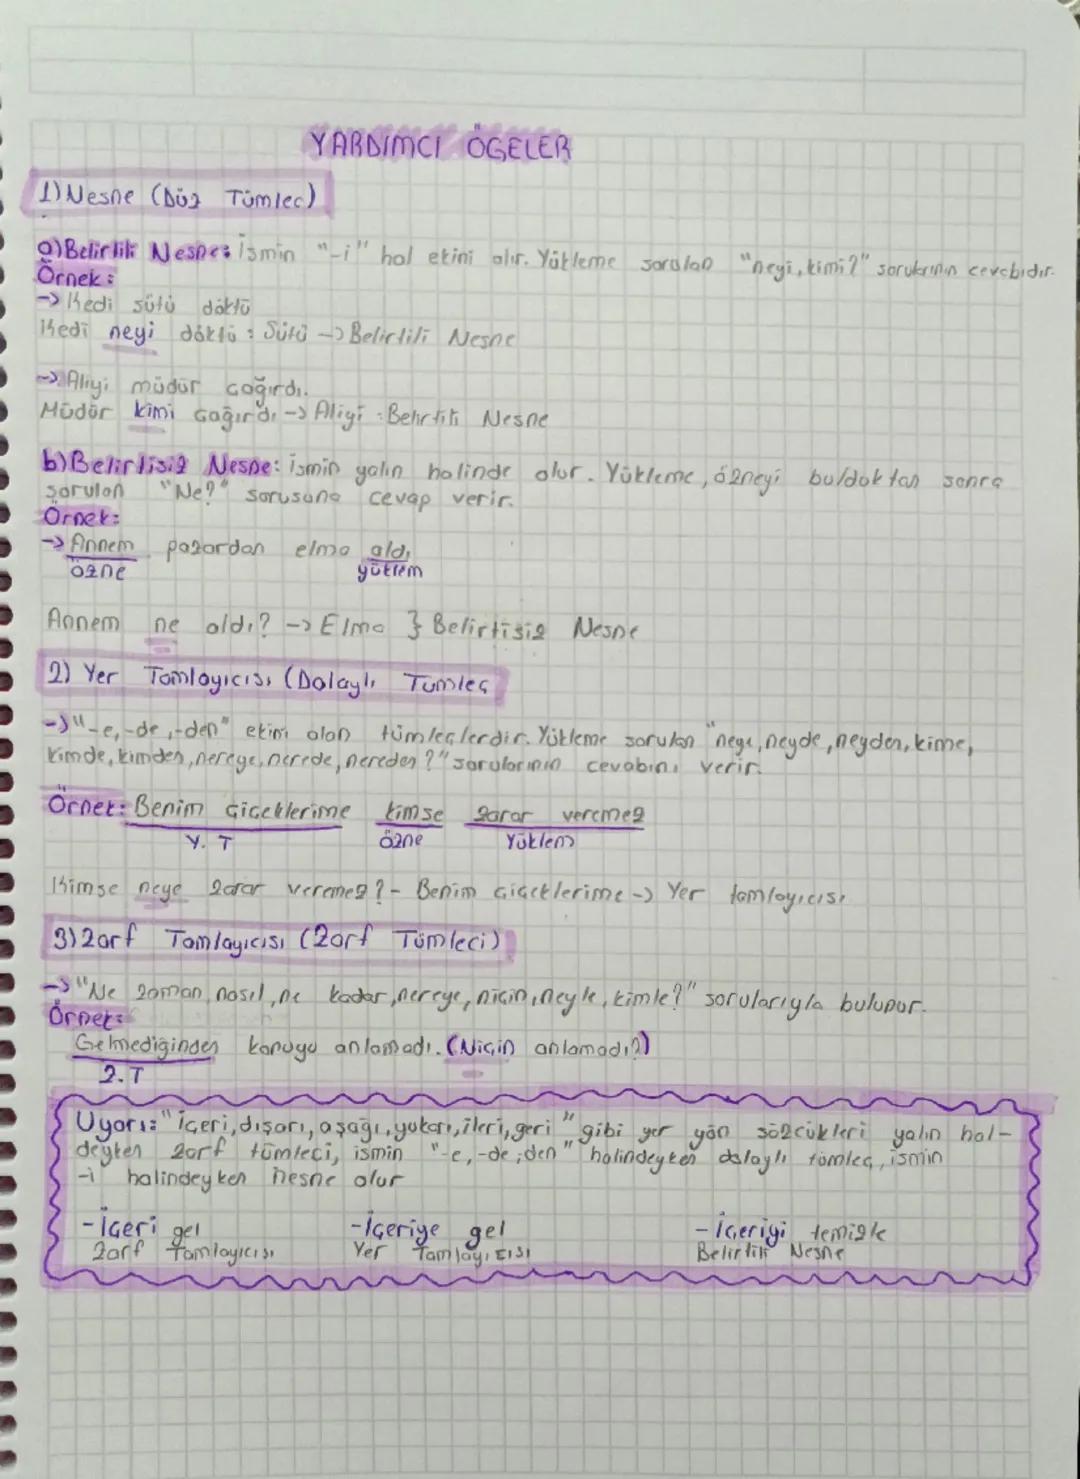 YARDIMCI ÖGELER
1) Nesne (Düz Tümlec)
a) Belirtili Nesne: İsmin "-i" hal ekini alır. Yükleme sorulan "neyi, kimi?" sorularının cevebıdır.
Örnek:
-> Kedi sütü döktü
Kedi neyi döktü : Sütü -> Belirtili Nesne
-> Aliyi müdür çağırdı.
Müdür kimi çağırdı -> Aliyi : Belirtili Nesne
b) Belirtisiz Nesne: ismin yalın halinde olur. Yükleme, özneyi bulduktan sonra
sorulan "Ne?" sorusuna cevap verir.
Örnek:
-> Annem pazardan elma aldı
özne yüklem
Annem ne aldı? -> Elma } Belirtisiz Nesne
2) Yer Tamlayıcısı (Dolaylı Tümleç
-> "-e, -de, -den" ekini alan tümleçlerdir. Yükleme sorulan "neye, neyde, neyden, kime,
kimde, kimden, nereye, nerede, nereden?" sorularının cevabını verir.
Örnek: Benim çiçeklerime kimse zarar veremez
Y. T özne Yüklem
Kimse neye zarar veremez? - Benim çiçeklerime -> Yer tamlayıcısı
3) Zarf Tamlayıcısı (Zarf Tümleci)
-> "Ne zaman, nasıl, ne kadar, nereye, niçin, neyle, kimle?" sorularıyla bulunur.
Örnek:
Gelmediğinden konuyu anlamadı. (Niçin anlamadı?)
Z. T
Uyarı: "içeri, dışarı, aşağı, yukarı, ileri, geri" gibi yer yön sözcükleri yalın hal-
deyken zarf tümleci, ismin "-e, -de, den" halindeyken dolaylı tümleç, ismin
-i halindeyken nesne olur
- İçeri gel -İçeriye gel - İçeriyi temizle
Zarf Tamlayıcısı Yer Tamlayıcısı Belirtili Nesne